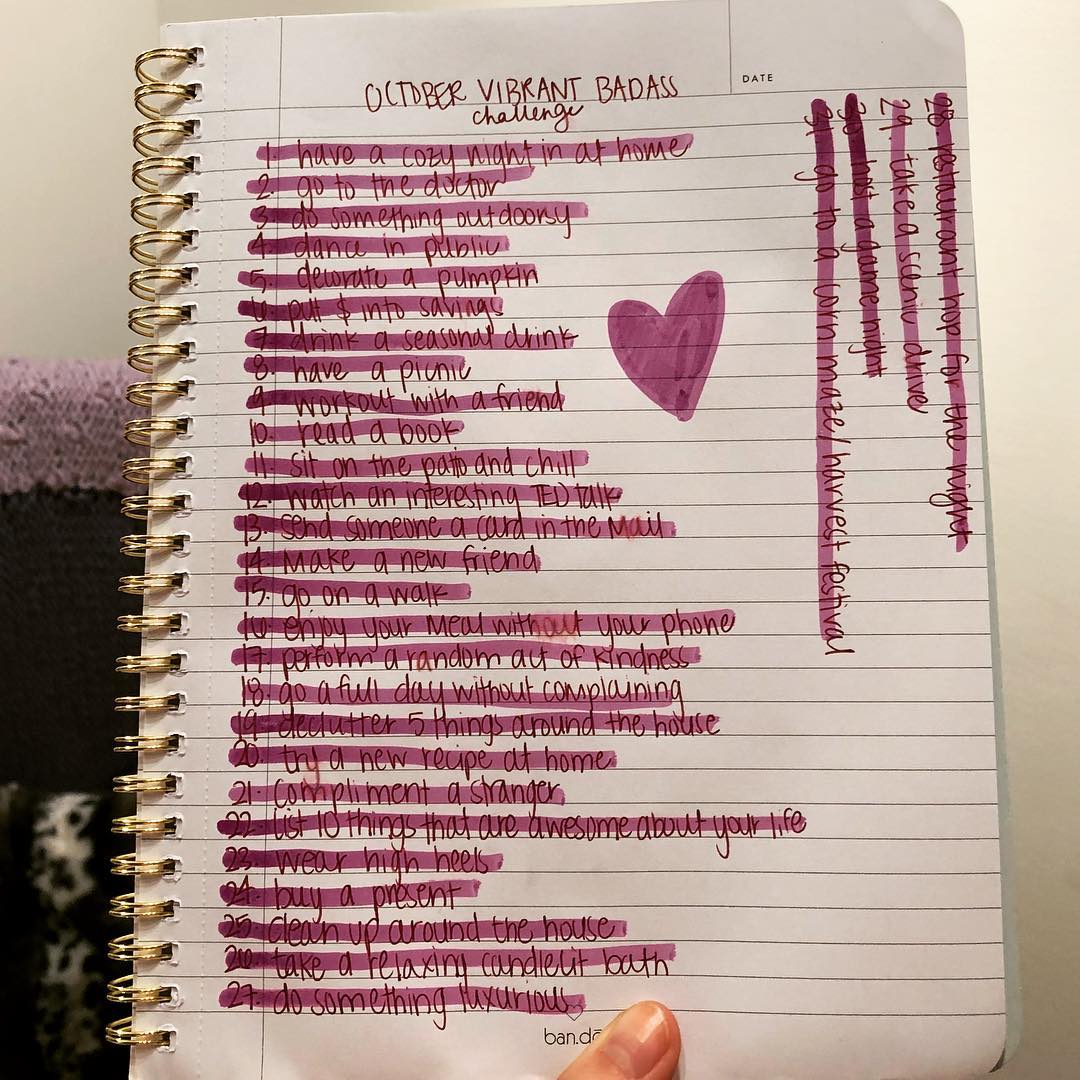 OCTOBER VIBRANT BADASS
challenge
DATE
1. have a cozy night in at home
2. go to the doctor
3. do something outdoorsy
4. dance in public
5. decorate a pumpkin
6. put $ into savings
7. drink a seasonal drink
8. have a picnic
9. workout with a friend
10. read a book
11. sit on the patio and chill
12. watch an interesting TED talk
13. send someone a card in the mail
14. make a new friend
15. go on a walk
16. enjoy your meal without your phone
17. perform a random act of kindness
18. go a full day without complaining
19. declutter 5 things around the house
20. try a new recipe at home
21. compliment a stranger
22. list 10 things that are awesome about your life
23. wear high heels
24. buy a present
25. clean up around the house
26. take a relaxing candlelit bath
27. do something luxurious
28 restaurant hop for the night
29 take a scenic drive
30 host a game night
31 go to a corn maze/harvest festival
ban.dō